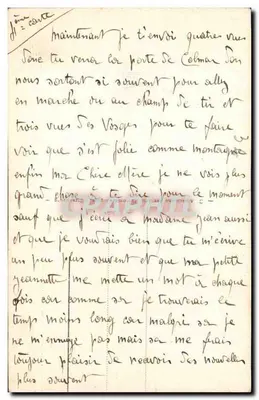 2ème carte
maintenant je t'envoi quatre vues
donc tu verra la porte de Colmar d'on
nous sortont si souvent pour aller
en marche ou au champs de tir et
trois vues des Vosges pour te faire
voir que s'est jolie comme montagne
enfin ma Chère je ne vois plus
grand chose à te dire pour le moment
sauf que j'écrie madame jean aussi
et que je voudrais bien que tu m'écrive
un peu plus souvent et que ma petite
jeannette me mette un mot à chaque
fois car comme sa je trouverais le
temps moins long car malgré sa je
ne m'ennuye pas mais sa me ferais
toujour plaisir de recevoir des nouvelles
plus souvent